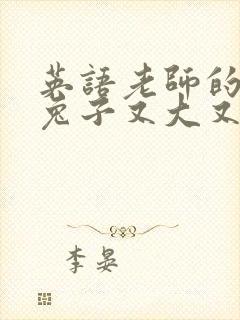 英語老師的
兔子又大又
李晏